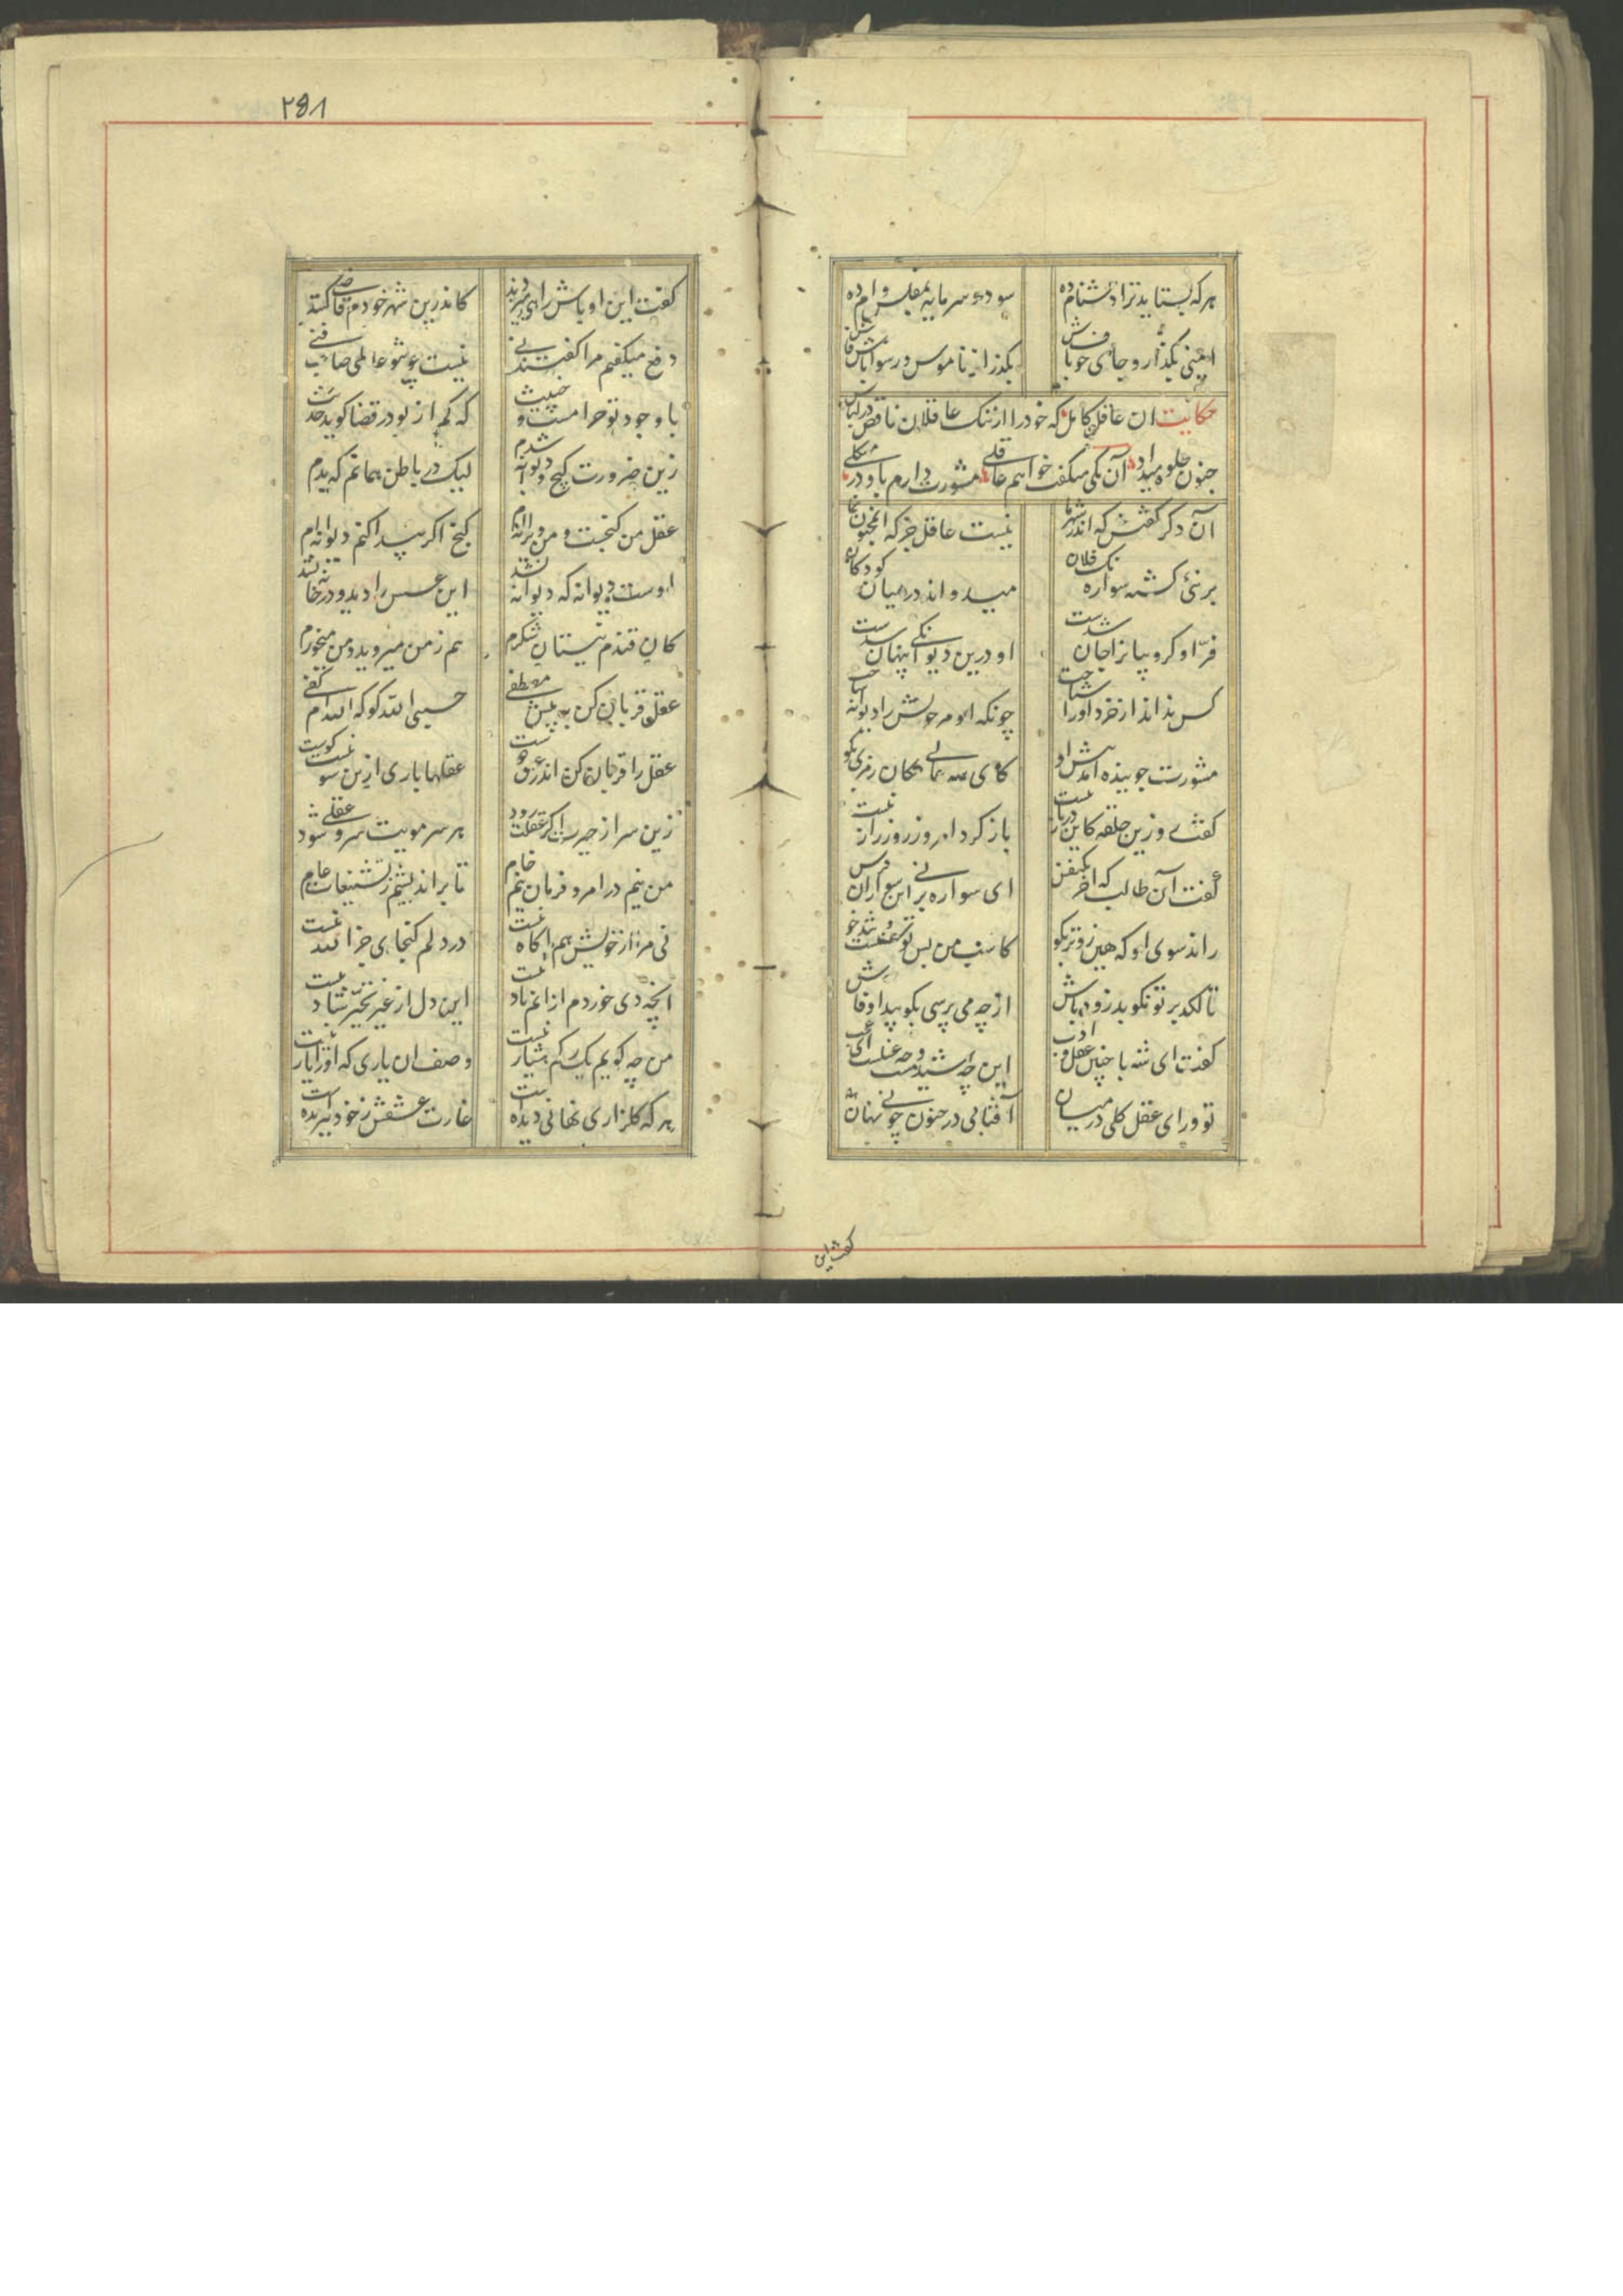 ۲۵۸
هرکه بستاید ترا دشنام ده
سود و سرمایه بمفلس وام ده
ایمنی بگذار و جای خوف باش
بگذر از ناموس و رسوا باش فاش
حکایت ان عاقل کامل که خود را از ننک عاقلان ناقص در لباس
جنون جلوه میداد آن یکی میکفت خواهم عاقلی مشورت دارم باو در مشکلی
آن دکر کفتش که اندر شهر ما
نیست عاقل جز که ان مجنون نما
بر نئ کشته سواره نک فلان
میدواند در میان کودکان
فرّ او کروبیانرا جان شدست
او درین دیوانکی پنهان شدست
کس نداند از خرد او را شناخت
چونکه او مر خویش را دیوانه ساخت
مشورت جوینده آمد پیش او
کای
رمزی بکو
کفت رو زین حلقه کاین در باز نیست
باز کرد امروز روز راز نیست
کفت آن طالب که اخر یکنفس
ای سواره بر نی این سو ران فرس
راند سوی او که هین زوتر بکو
کاسب من بس توسنست و تندخو
تا لکد بر تو نکوبد زود باش
از چه می پرسی بکو پیدا و فاش
کفت ای شه با چنین عقل و ادب
این چه شیدست و چه عقلست ای عجب
تو ورای عقل کلی در میان
آفتابی در جنون چونی نهان
کفت این
کفت این اوباش رایی میزدند
کاندرین شهر خودم قاضی کنند
دفع میکفتم مرا کفتند نی
نیست چو تو عالمی صاحب فنی
با وجود تو حرامست و خبیث
که کم از تو در قضا کوید حدیث
زین ضرورت کیج و دیوانه شدم
لیک در باطن همانم که بدم
عقل من کنجست و من ویرانه ام
کنج اکر پیدا کنم دیوانه ام
اوست دیوانه که دیوانه نشد
این عسس را دید و در خانه نشد
کان قندم نیستان شکرم
هم ز من میروید و من میخورم
عقل قربان کن به پیش مصطفی
حسبی الله کو که الله ام کفی
عقل را قربان کن اندر عشق دوست
عقلها باری ازین سو نیست کوست
زین سر از حیرت اکر عقلت رود
هر سر مویت سر و عقلی شود
من نیم در امر و فرمان نیم خام
تا براندیشم ز تشنیعات عام
نی مرا از خویش هم اکاه نیست
در دلم کنجای جز الله نیست
انچه دی خوردم از انم یاد نیست
این دل از غیر تحیّر شاد نیست
من چه کویم یک رکم هشیار نیست
وصف ان یاری که او را یار نیست
هر که کلزاری نهانی دیده است
غارت عشقش ز خود ببریده است